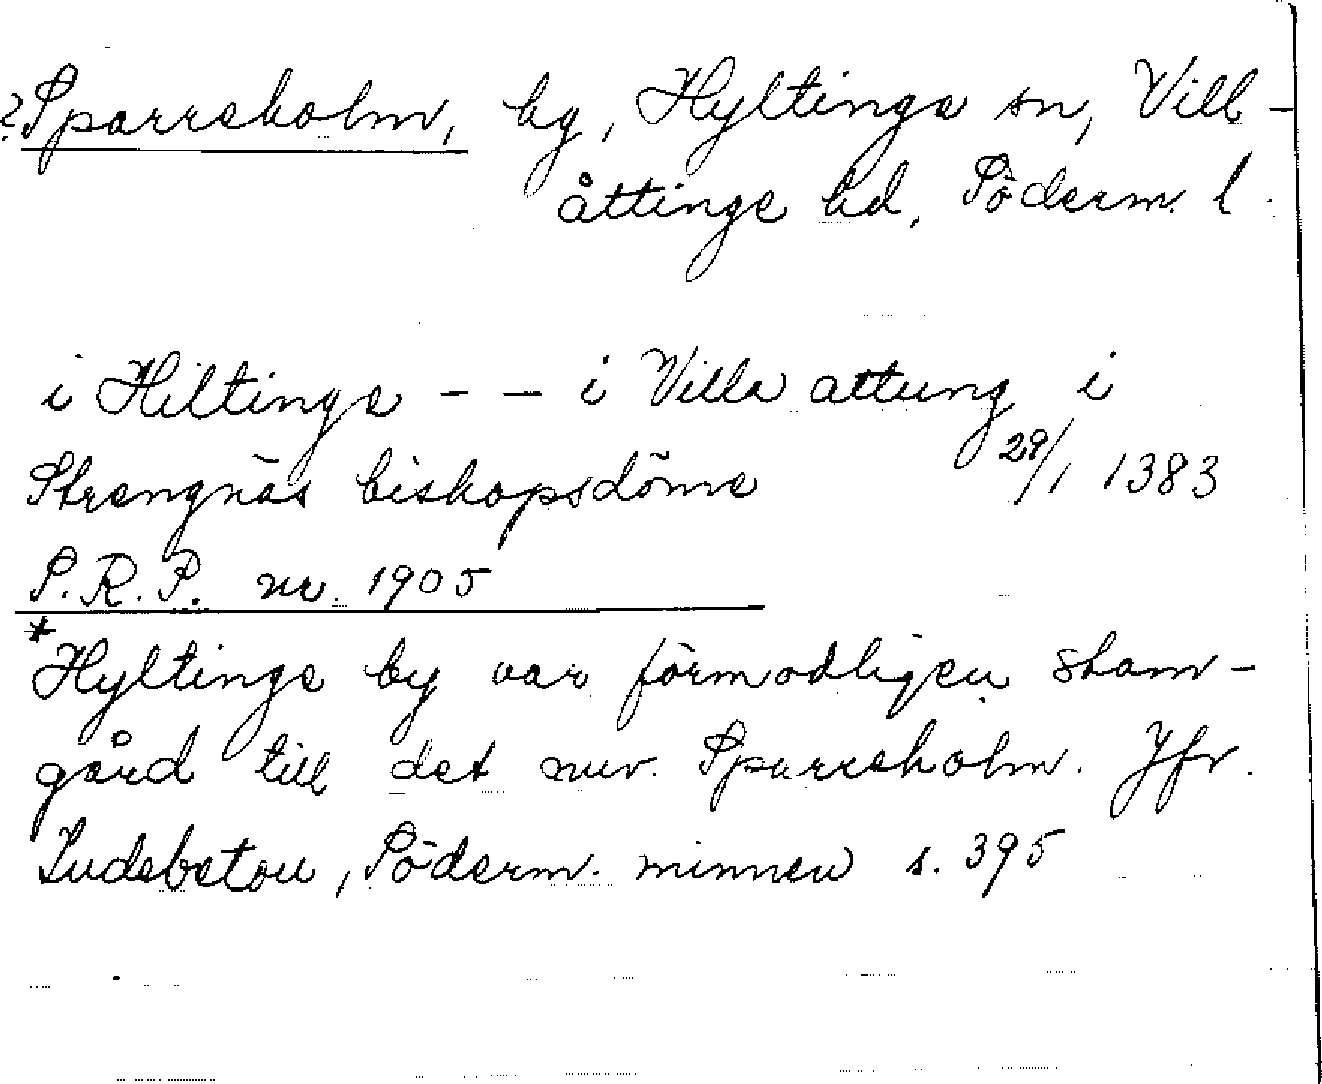 ?Sparreholm, by, Hyltinge sn, Vill-
åttinge hd, Söderm. l.
i Hiltinge - - i Villa attung i
Strengnäs biskopsdöme 29/1 1383
S.R.P. nr. 1905
*Hyltinge by var förmodligen stam-
gård till det nuv. Sparreholm. Jfr.
Ludebetou, Söderm. minnen s. 395